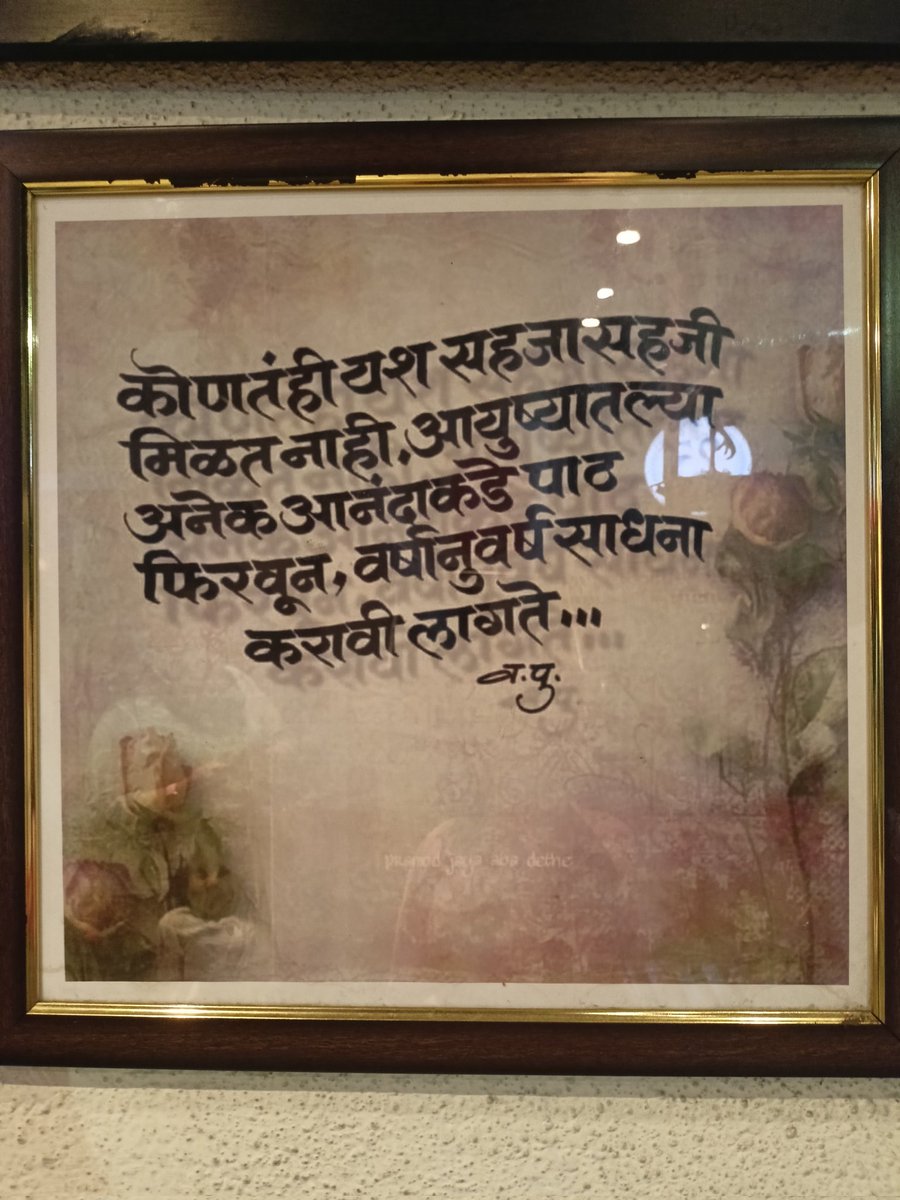 कोणतंही यश सहजासहजी
मिळत नाही. आयुष्यातल्या
अनेक आनंदाकडे पाठ
फिरवून, वर्षानुवर्ष साधना
करावी लागते...
व.पु.
pramod jaya aba dethe